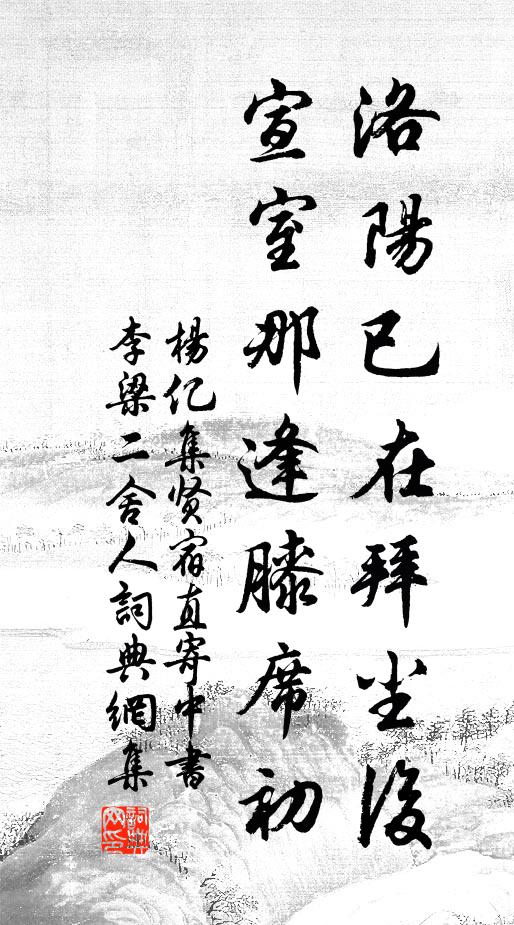 洛陽已在拜尘後
宣室那逢膝席初
楊亿集贤宿直寄中書
李梁二舍人詞典網集